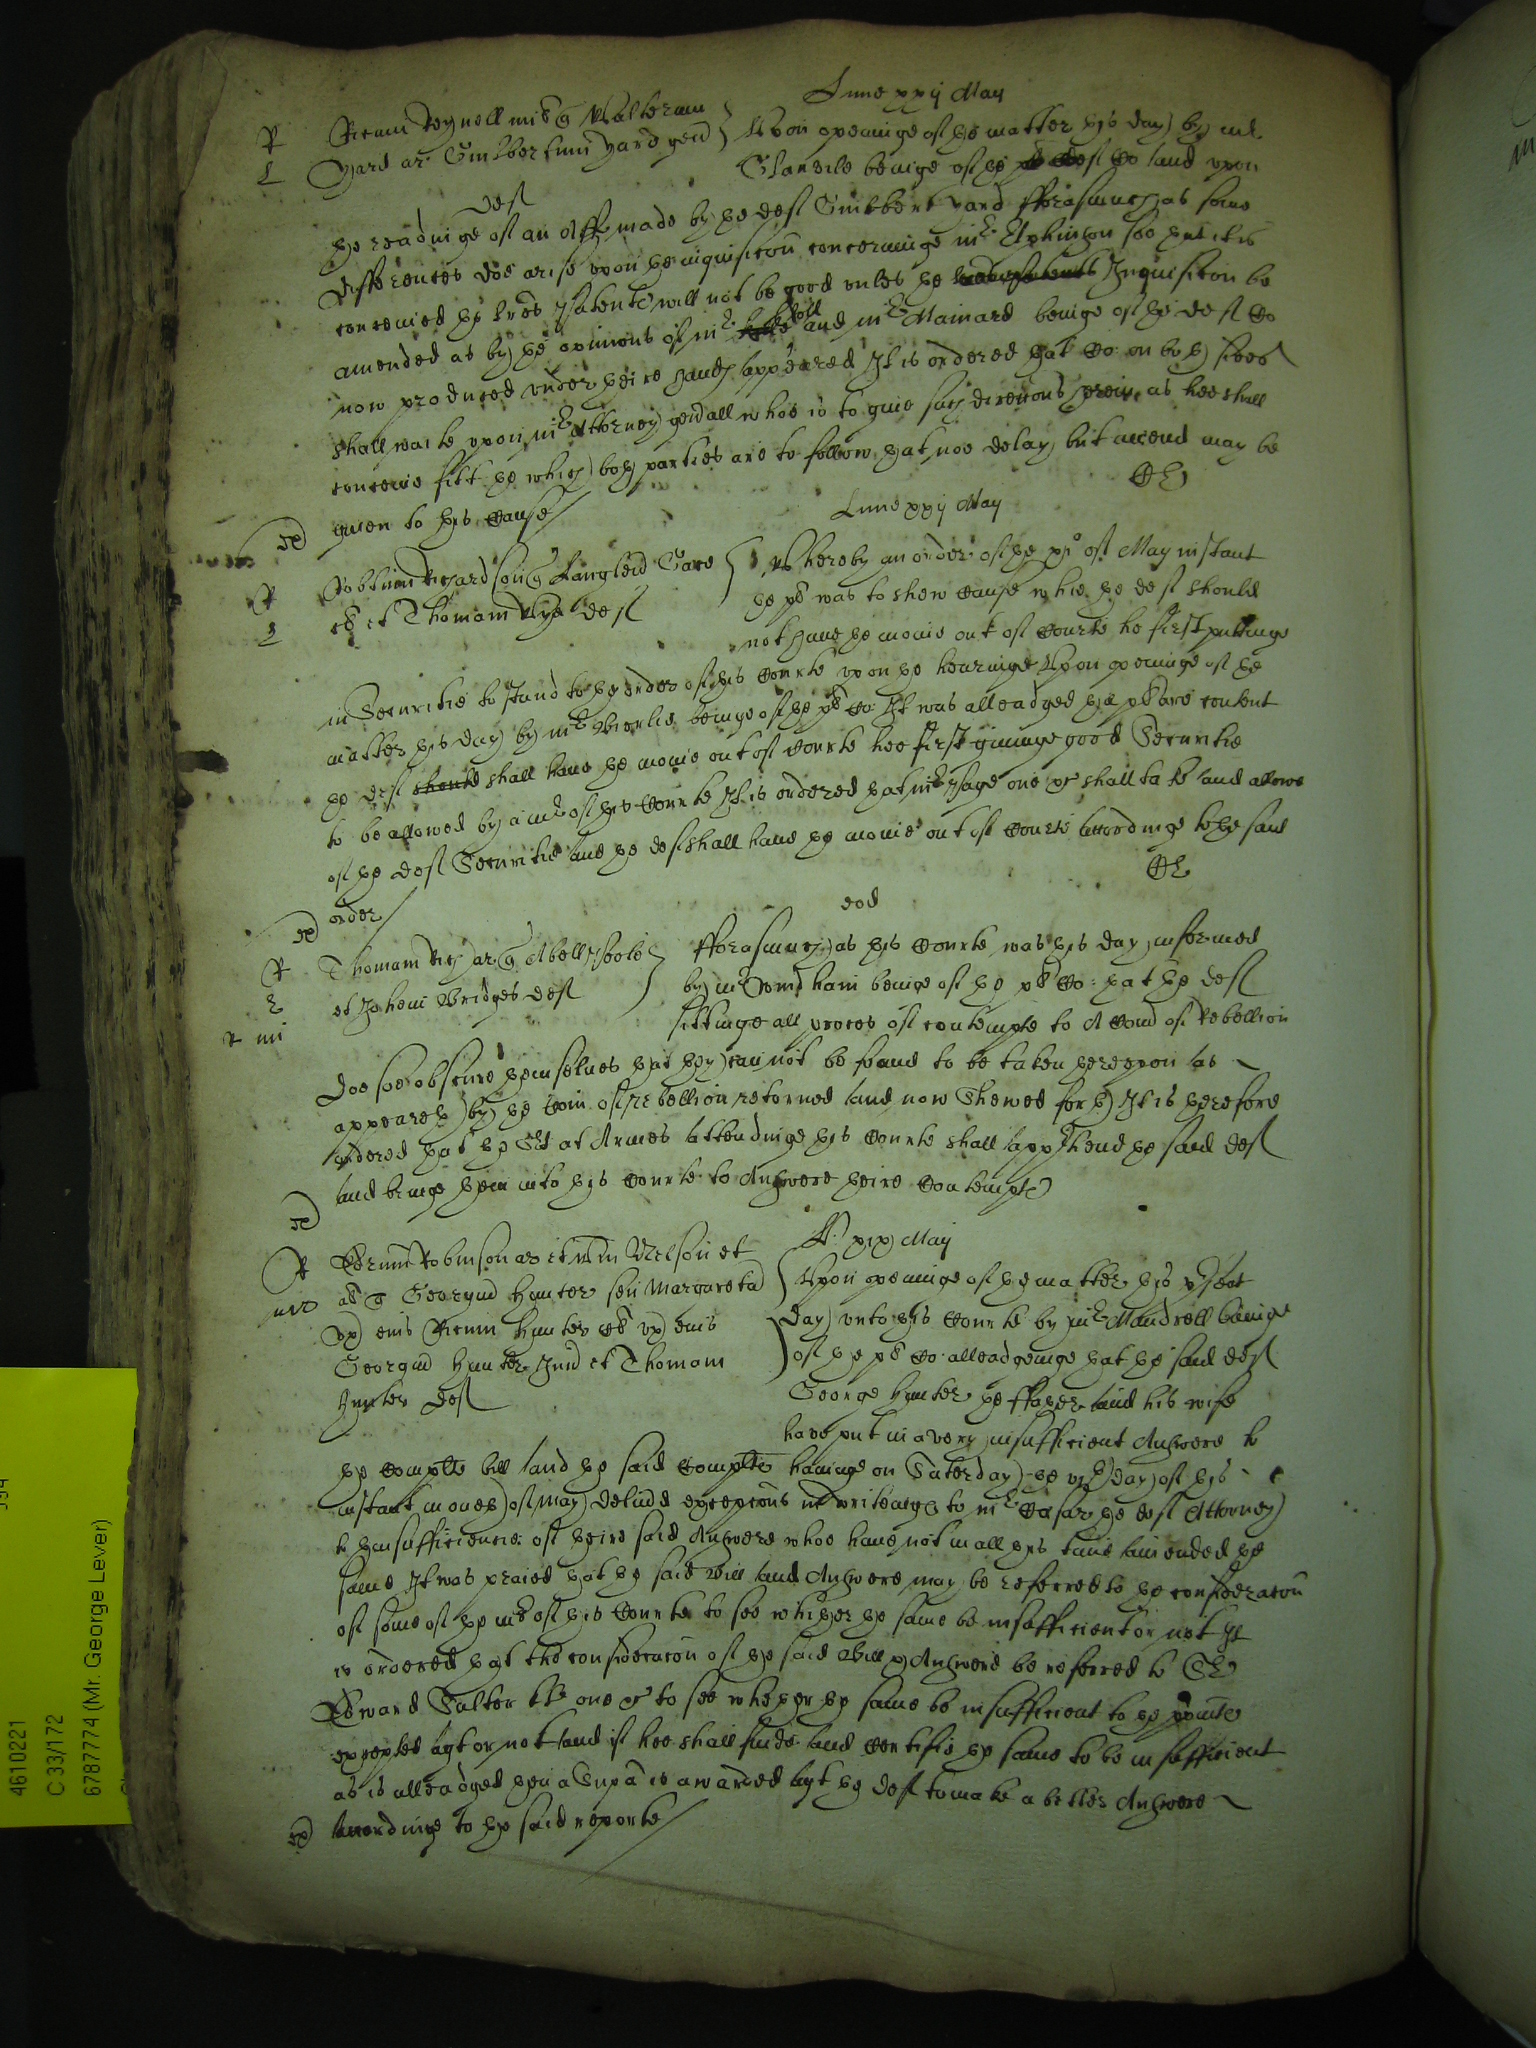 Lune xxij May
R Ricum Reynell mil q Walterum
L Yard ar Guilbertum Yard gen
def
Upon openinge of þe matter þis day by mr
Glanvile beinge of þe def Co and upon
þe readinge of an Aff made by þe def Guilbert Yard fforasmuch as some
differences doe arise upon þe inquisicon concerninge mr Atkinson soe þat it is
conceived þe lres Patents will not be good unles þe Inquisicon be
amended as by þe opinions of mr and mr Mainard beinge of þe def Co
now produced under þeire hands appeared It is ordered þat Co on both sides
shall waite upon mr Attorney genall whoe is to give such direcons herein as hee shall
conceive fitt þe which both parties are to follow þat noe delay but an end may be
given to þis Cause
ex
Lune xxij May
R Robtum Richardson q Langleid Gare
L et Thomam def
Whereby an order of þe of May instant
þe pl was to shew cause whie þe def should
not have þe monie out of Courte he first puttinge
in Securitie to stand to þe order of þis Courte upon þe hearinge Upon openinge of þe
matter þis day by mr Bierlie beinge of þe pl Co It was alleadged þe pl are content
þe def shall have þe monie out of Courte hee first givinge good Securitie
to be allowed by a mr of þis Courte It is ordered þat mr Page one &c shall take and allowe
of þe def Securitie and þe def shall have þe monie out of Courte accordinge to þe said
order
ex
eod
R Thomam Rich ar q Abell Poole
L et Johem Bridges def
R mi
fforasmuch as þis Courte was þis day informed
by mr Wind ham beinge of þe pl Co þat þe def
sittinge all proces of contempte to A Comd of Rebellion
doe soe obscure þemselves þat þey can not be found to be taken þereupon as
appeareth by þe Com of rebellion retorned and now Shewed forth It is þerefore
ordered þat þe St at Armes attendinge þis Courte shall apphend þe said def
and bringe þem into þis Courte to Answere þeire Contempts
ex
V xix May
R Robinson ar et Willm Nelson et
al q Georgiu Hunter sen Margareta
ux eius Ricum Hunter et ux eius
Georgiu Hunter Jun et Thomam
Hunter def
Upon openinge of þe matter þis psent
day unto þis Courte by mr Mandrell beinge
of þe pl Co alleadgeinge þat þe said def
George Hunter þe ffather and his wife
have put in a very insufficient Answere to
þe Complts bill and þe said Complts havinge on Saterday þe day of þis
instant moneth of May delivd excepcons in writeinge to mr Cesar þe def Attorney
to þe insufficiencie of þeire said Answere whoe have not in all þis time amended þe
same It was praied þat þe said Bill and Answere may be referred to þe consideracon
of some of þe mr of þis Courte to see whither þe same be insufficient or not It
is ordered þat the consideracon of þe said Bill & Answere be referred to Sr
Edward Salter kt one &c to see whether þe same be insufficient to þe points
excepted agt or not and if hee shall finde and Certifie þe same to be insufficient
as is alleadged þen a Supa is awarded agt þe def to make a better Answere
ex accordinge to þe said reporte
4610221
C 33/172
6787774 (Mr. George Lever)